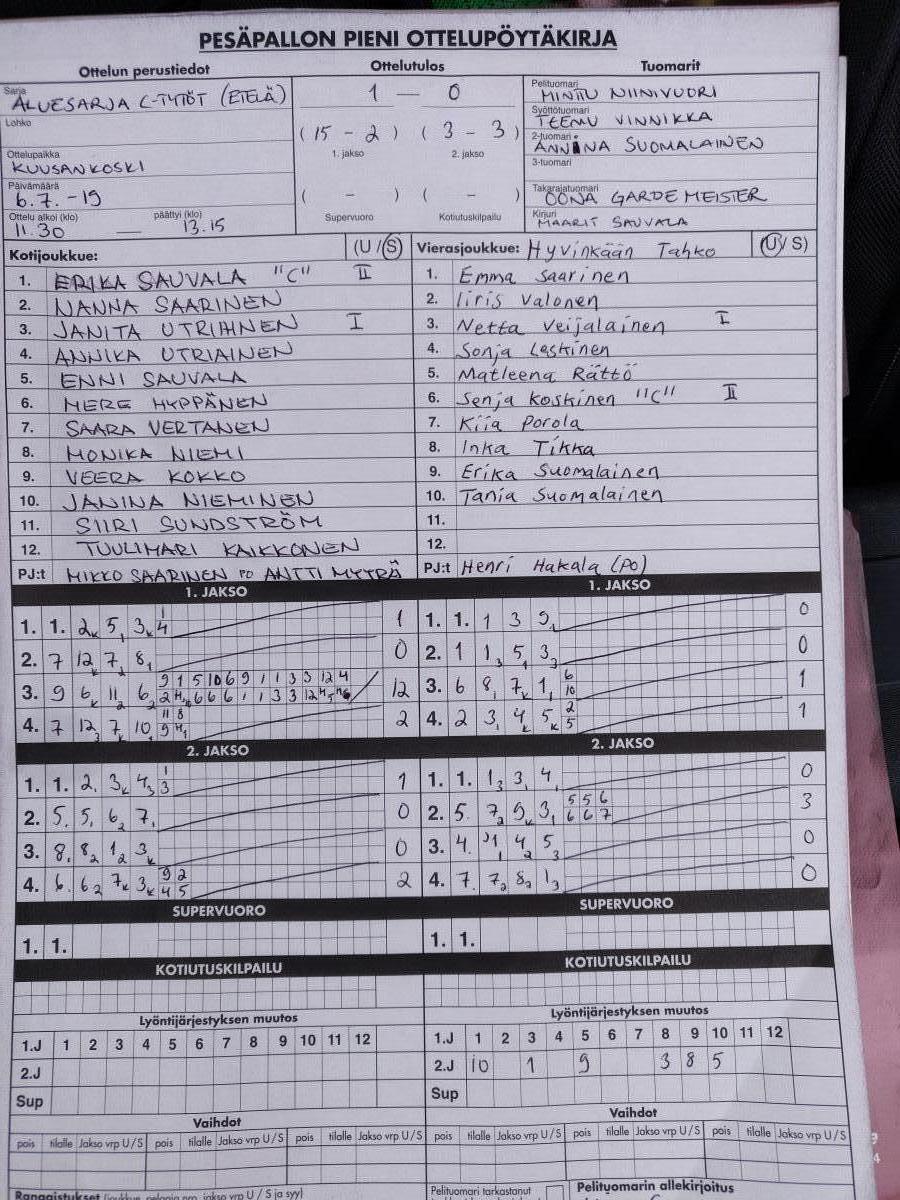 PESÄPALLON PIENI OTTELUPÖYTÄKIRJA
Ottelun perustiedot Ottelutulos Tuomarit
Sarja
ALUESARJA C-TYTÖT (ETELÄ)
Lohko
Ottelupaikka
KUUSANKOSKI
Päivämäärä
6.7.-19
Ottelu alkoi (klo) päättyi (klo)
11.30 — 13.15
1 — 0
(15 - 2) (3 - 3)
1. jakso 2. jakso
( - ) ( - )
Supervuoro Kotiutuskilpailu
Pelituomari
MINTTU NIINIVUORI
Syöttötuomari
TEEMU VINNIKKA
2-tuomari
ANNINA SUOMALAINEN
3-tuomari
Takarajatuomari
OONA GARDEMEISTER
Kirjuri
MAARIT SAUVALA
Kotijoukkue: (U / S)
1. ERIKA SAUVALA "C" II
2. NANNA SAARINEN
3. JANITA UTRIAINEN I
4. ANNIKA UTRIAINEN
5. ENNI SAUVALA
6. MERE HYPPÄNEN
7. SAARA VERTANEN
8. MONIKA NIEMI
9. VEERA KOKKO
10. JANINA NIEMINEN
11. SIIRI SUNDSTRÖM
12. TUULIMARI KAIKKONEN
PJ:t MIKKO SAARINEN PO ANTTI MYYRÄ
Vierasjoukkue: Hyvinkään Tahko (U / S)
1. Emma Saarinen
2. Iiris Valonen
3. Netta Veijalainen I
4. Sonja Leskinen
5. Matleena Rättö
6. Senja Koskinen "C" II
7. Kiia Porola
8. Inka Tikka
9. Erika Suomalainen
10. Tania Suomalainen
11.
12.
PJ:t Henri Hakala (PO)
1. JAKSO
1. 1. 2k 5, 3k 1 4 1
2. 7 12k 7, 8, 0
3. 9 6k 11 6 12
4. 7 12 7 10 2
1. JAKSO
1. 1. 1 3 9, 0
2. 1 1, 5, 3 0
3. 6 8, 7k 1, 6 10 1
4. 2 3, 4k 5k 2 5 1
2. JAKSO
1. 1. 2, 3k 4 1 3 1
2. 5. 5, 6₂ 7, 0
3. 8. 8₂ 1₂ 3k 0
4. 6. 6₂ 7k 3k 9 2 4 5 2
2. JAKSO
1. 1. 1₃ 3, 4, 0
2. 5. 7₂ 9k 3, 5 5 6 6 6 7 3
3. 4. 4₂ 5₃ 0
4. 7. 7₂ 8₂ 1₃ 0
SUPERVUORO SUPERVUORO
1. 1. 1. 1.
KOTIUTUSKILPAILU KOTIUTUSKILPAILU
Lyöntijärjestyksen muutos
1.J 1 2 3 4 5 6 7 8 9 10 11 12
2.J
Sup
Lyöntijärjestyksen muutos
1.J 1 2 3 4 5 6 7 8 9 10 11 12
2.J 10 1 9 3 8 5
Sup
Vaihdot Vaihdot
pois tilalle Jakso vrp U / S pois tilalle Jakso vrp U / S pois tilalle Jakso vrp U / S
pois tilalle Jakso vrp U / S pois tilalle Jakso vrp U / S pois tilalle Jakso vrp U / S
Rangaistukset (joukkue, pelaaja nro, jakso vrp U / S ja syy)
Pelituomari tarkastanut
Pelituomarin allekirjoitus